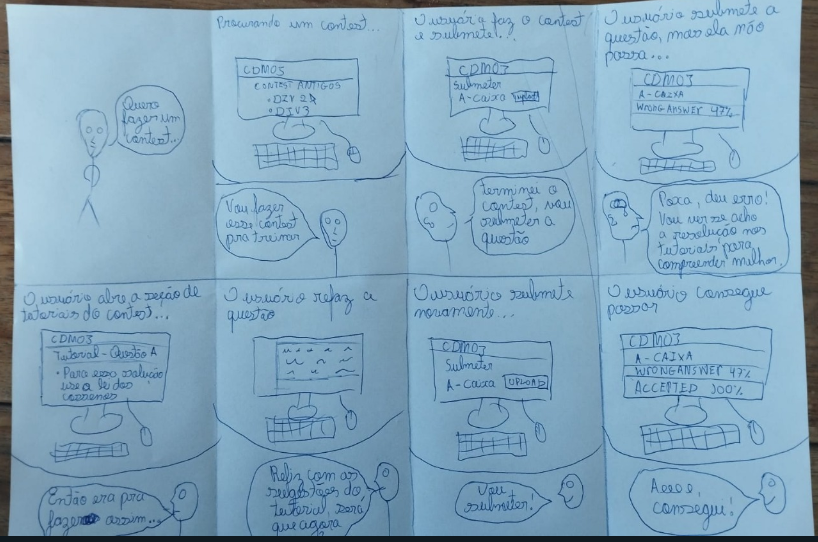 Quero
fazer um
contest...
Procurando um contest...
CDMO3
CONTEST ANTIGOS
• DIV 2
• DIV3
Vou fazer
esse contest
pra treinar
O usuário faz o contest
e submete...
CDMO3
Submeter
A-CAIXA upload
terminei o
contest, vou
submeter a
questão
O usuário submete a
questão, mas ela não
passa...
CDMO3
A-CAIXA
WRONG ANSWER 47%
Poxa, deu erro!
Vou ver se acho
a resolução nos
tutoriais para
compreender melhor.
O usuário abre a seção de
tutoriais do contest...
CDMO3
Tutorial-Questão A
• Para essa solução
use a lei dos
cossenos
Então era pra
fazer assim...
O usuário refaz a
questão
Refiz com as
sugestões do
tutorial, será
que agora
O usuário submete
novamente...
CDMO3
Submeter
A-Caixa UPLOAD
Vou
submeter!
O usuário consegue
passar
CDMO3
A-CAIXA
WRONG ANSWER 47%
ACCEPTED 100%
Aeee,
consegui!